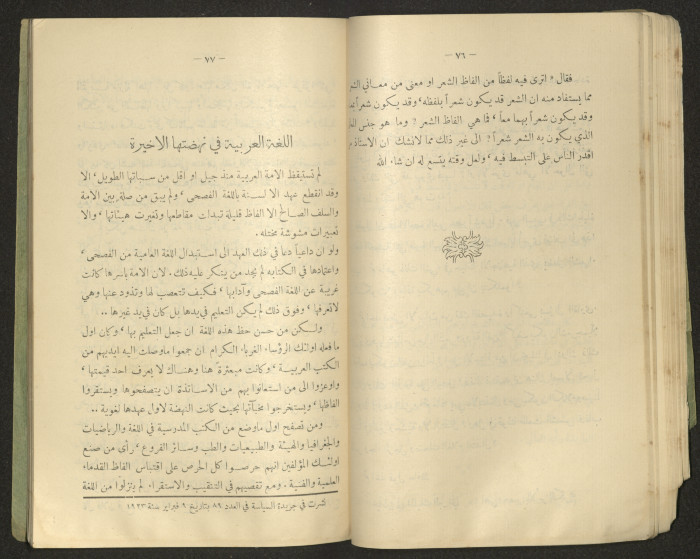 — ٧٦ —
فقال « اترى فيه لفظاً من الفاظ الشعر او معنى من معاني
مما يستفاد منه ان الشعر قد يكون شعراً بلفظه ، وقد يكون شعراً
وقد يكون شعراً بهما معاً ، فما هي الفاظ الشعر ؟ وما هو جنس
الذي يكون به الشعر شعراً ؟ الى غير ذلك مما لانشك ان الاستاذ
اقدر الناس على التبسط فيه ، ولعل وقته يتسع له ان شاء الله
— ٧٧ —
اللغة العربية في نهضتها الاخيرة
لم تستيقظ الامة العربية منذ جيل او اقل من سباتها الطويل ، الا
وقد انقطع عهد الالسنة باللغة الفصحى ، ولم يبق من صلة بين الامة
والسلف الصالح الا الفاظ قليلة تبدلت مقاطعها وتغيرت هيئاتها ، والا
تعبيرات مشوشة مختله .
ولو ان داعياً دعا في ذلك العهد الى استبدال اللغة العامية من الفصحى ،
واعتمادها في الكتابه لم يجد من ينكر عليه ذلك . لان الامة باسرها كانت
غريبة عن اللغة الفصحى وآدابها ، فكيف تتعصب لها وتذود عنها وهي
لاتعرفها ، وفوق ذلك لم يكن التعليم في يدها بل كان في يد غيرها ..
ولكن من حسن حظ هذه اللغة ان جعل التعليم بها ، وكان اول
مافعله اولئك الرؤساء الغرباء الكرام ان جمعوا ماوصلت اليه ايديهم من
الكتب العربية ، وكانت مبعثرة هنا وهناك لا يعرف احد قيمتها ،
واوعزوا الى من استعانوا بهم من الاساتذة ان يتصفحوها ويستقروا
الفاظها ، ويستخرجوا مخبآتها بحيث كانت النهضة لاول عهدها لغوية ..
ومن تصفح اول ماوضع من الكتب المدرسية في اللغة والرياضيات
والجغرافيا والهيئة والطبيعيات والطب وسائر الفروع ، رأى من صنع
اولئك المؤلفين انهم حرصوا كل الحرص على اقتباس الفاظ القدماء
العلمية والفنية . ومع تقصيهم في التنقيب والاستقراء لم يتزلوا من اللغة
نشرت في جريدة السياسة في العدد ٨٩ بتاريخ ٩ فبراير سنة ١٩٢٣